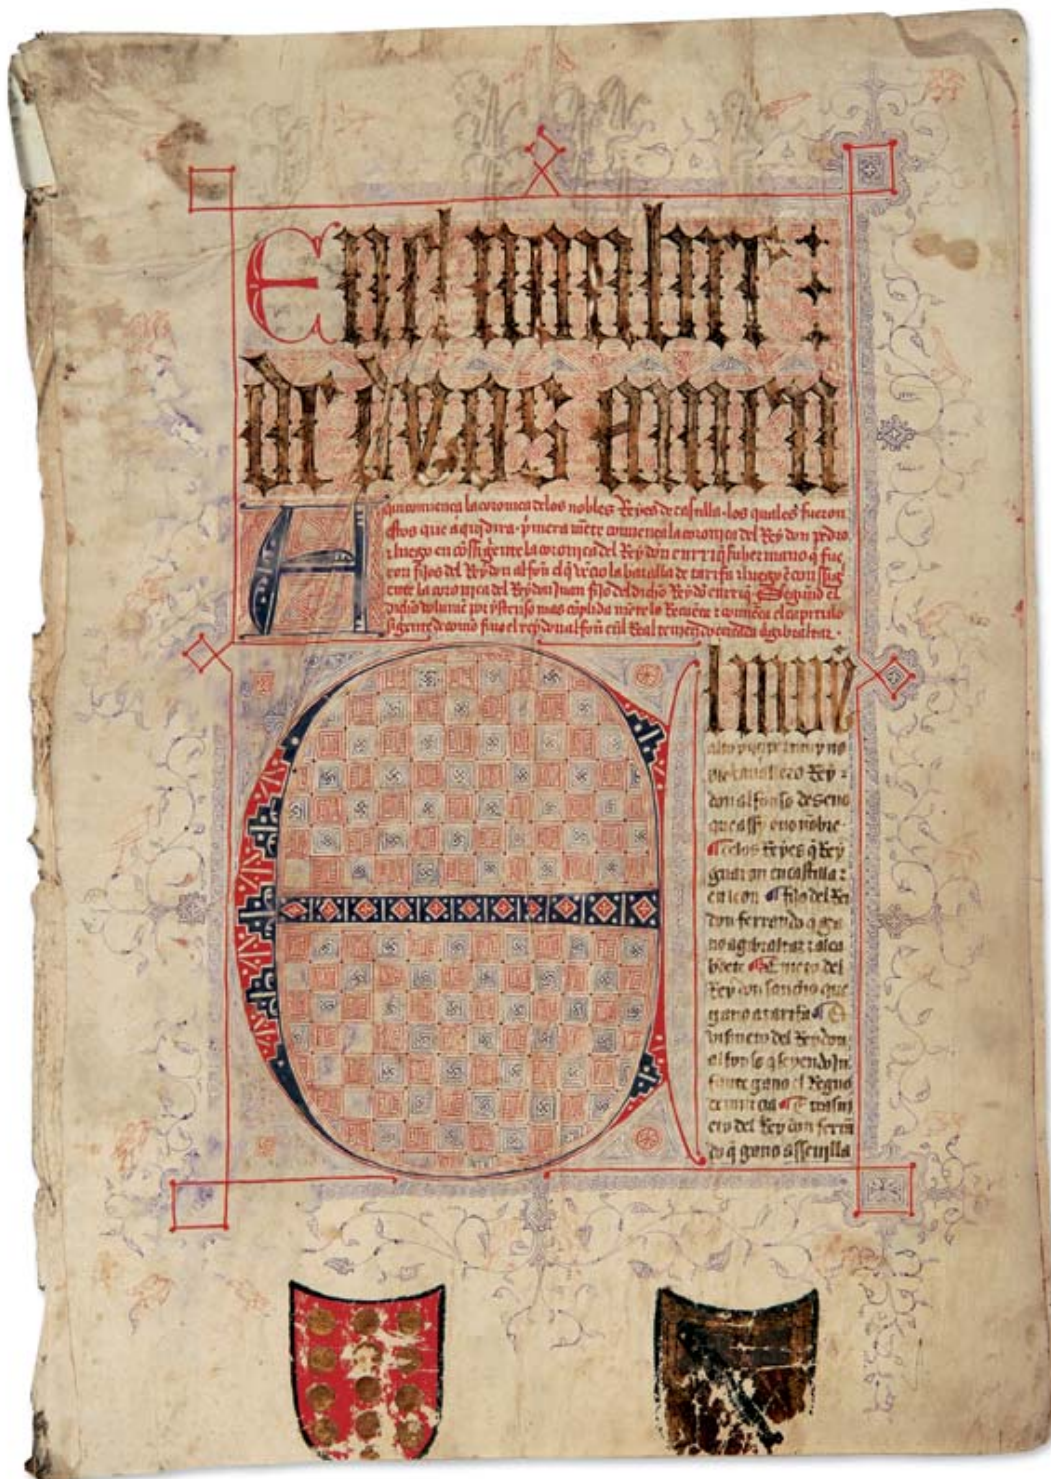 En el nombre
de dyos amen
Aqui comiença la coronica delos nobles Reyes de castilla · los quales fueron
estos que aqui dira · p̃mera mẽte comiença la coronica del Rey don pedro
⁊ luego en cõssigẽte la coronica del Rey don enrriq̃ su hermano q̃ fue
ron fijos del Rey don alfoñ el q̃ vẽcio la batalla de tarifa ⁊ luego ẽ conssig
ente la coronica del Rey don Juan fijo del dicho Rey dõ enrriq̃ · Segund el
dicho volumẽ por ystenso mas cõplida mẽte lo Recuẽta ⁊ comiẽca el capitulo
sigente de como fino el rey don alfoñ enl Real teniendo cercada a gibraltar ·
El muy
alto ⁊ muy no
ble cauallero Rey
don alfonso deseno
que assy ouo nõbre
delos Reyes q̃ Rey
gnaron en castilla ⁊
en leon fijo del Rei
don ferrando q̃ ga
no a gibraltar ⁊ alca
bdete E nieto del
Rey don sancho que
gano a tarifa E
visnieto del Rey don
alfonso q̃ seyendo In
fante gano el Regno
de murcia E trasni
eto del Rey don ferrã
do q̃ gano a sseuilla